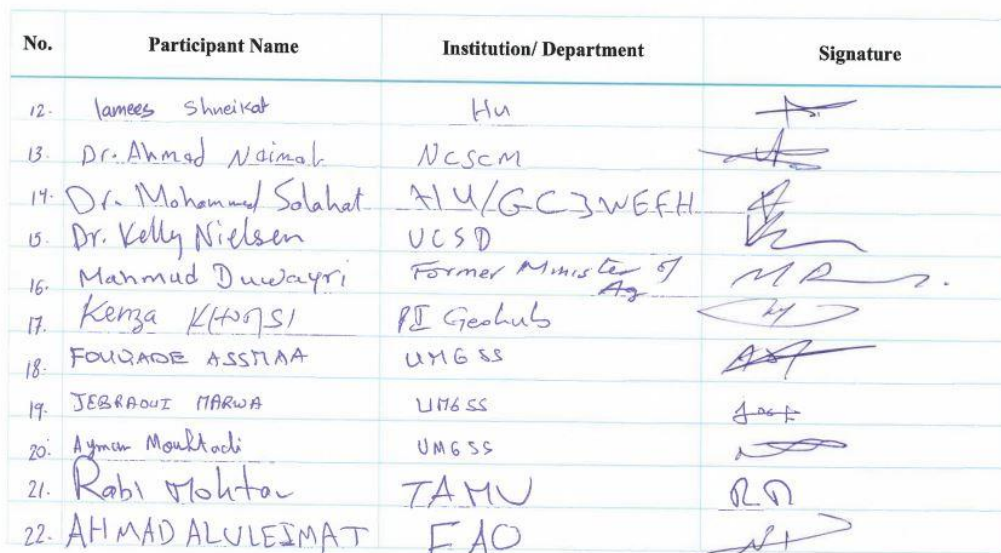 No. Participant Name Institution/ Department Signature
12. lamees Shneikat Hu
13. Dr. Ahmad Naimat NCSCM
14. Dr. Mohammed Salahat
15. Dr. Kelly Nielsen UCSD
16. Mahmud Duwayri Former Minister of Ag
17. Kenza PI Geohub
18. FOUQADE ASSMAA UM6SS
19. JEBRAOUI MARWA UM6SS
20. Ayman Mouhtadi UM6SS
21. Rabi Mohtar TAMU
22. AHMAD ALULEIMAT FAO